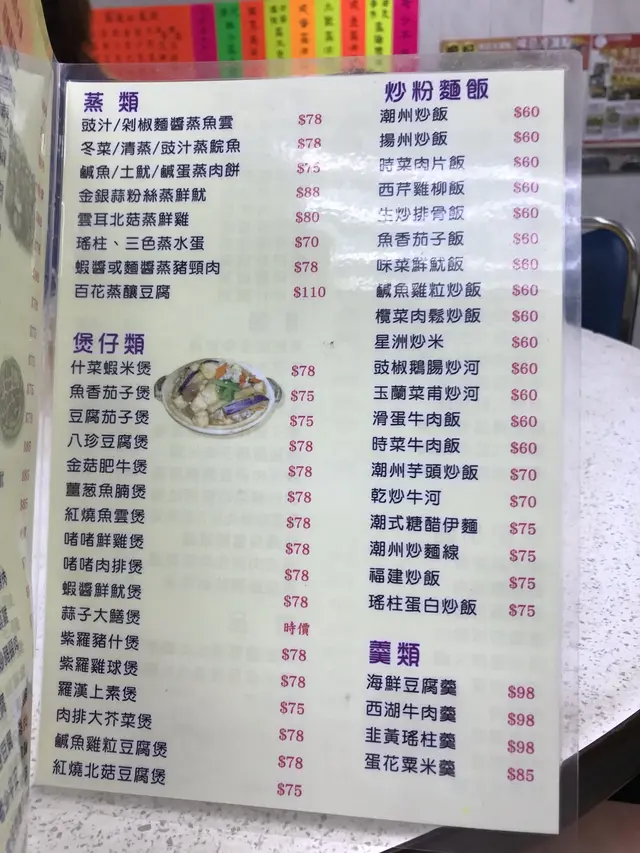 蒸類
豉汁/剁椒麵醬蒸魚雲 $78
冬菜/清蒸/豉汁蒸鯇魚 $78
鹹魚/土魷/鹹蛋蒸肉餅 $75
金銀蒜粉絲蒸鮮魷 $88
雲耳北菇蒸鮮雞 $80
瑤柱、三色蒸水蛋 $70
蝦醬或麵醬蒸豬頸肉 $78
百花蒸釀豆腐 $110
煲仔類
什菜蝦米煲 $78
魚香茄子煲 $75
豆腐茄子煲 $75
八珍豆腐煲 $78
金菇肥牛煲 $78
薑葱魚腩煲 $78
紅燒魚雲煲 $78
啫啫鮮雞煲 $78
啫啫肉排煲 $78
蝦醬鮮魷煲 $78
蒜子大鱔煲 時價
紫羅豬什煲 $78
紫羅雞球煲 $78
羅漢上素煲 $75
肉排大芥菜煲 $78
鹹魚雞粒豆腐煲 $78
紅燒北菇豆腐煲 $75
炒粉麵飯
潮州炒飯 $60
揚州炒飯 $60
時菜肉片飯 $60
西芹雞柳飯 $60
生炒排骨飯 $60
魚香茄子飯 $60
味菜鮮魷飯 $60
鹹魚雞粒炒飯 $60
欖菜肉鬆炒飯 $60
星洲炒米 $60
豉椒鵝腸炒河 $60
玉蘭菜甫炒河 $60
滑蛋牛肉飯 $60
時菜牛肉飯 $60
潮州芋頭炒飯 $70
乾炒牛河 $70
潮式糖醋伊麵 $75
潮州炒麵線 $75
福建炒飯 $75
瑤柱蛋白炒飯 $75
羹類
海鮮豆腐羹 $98
西湖牛肉羹 $98
韭黃瑤柱羹 $98
蛋花粟米羹 $85